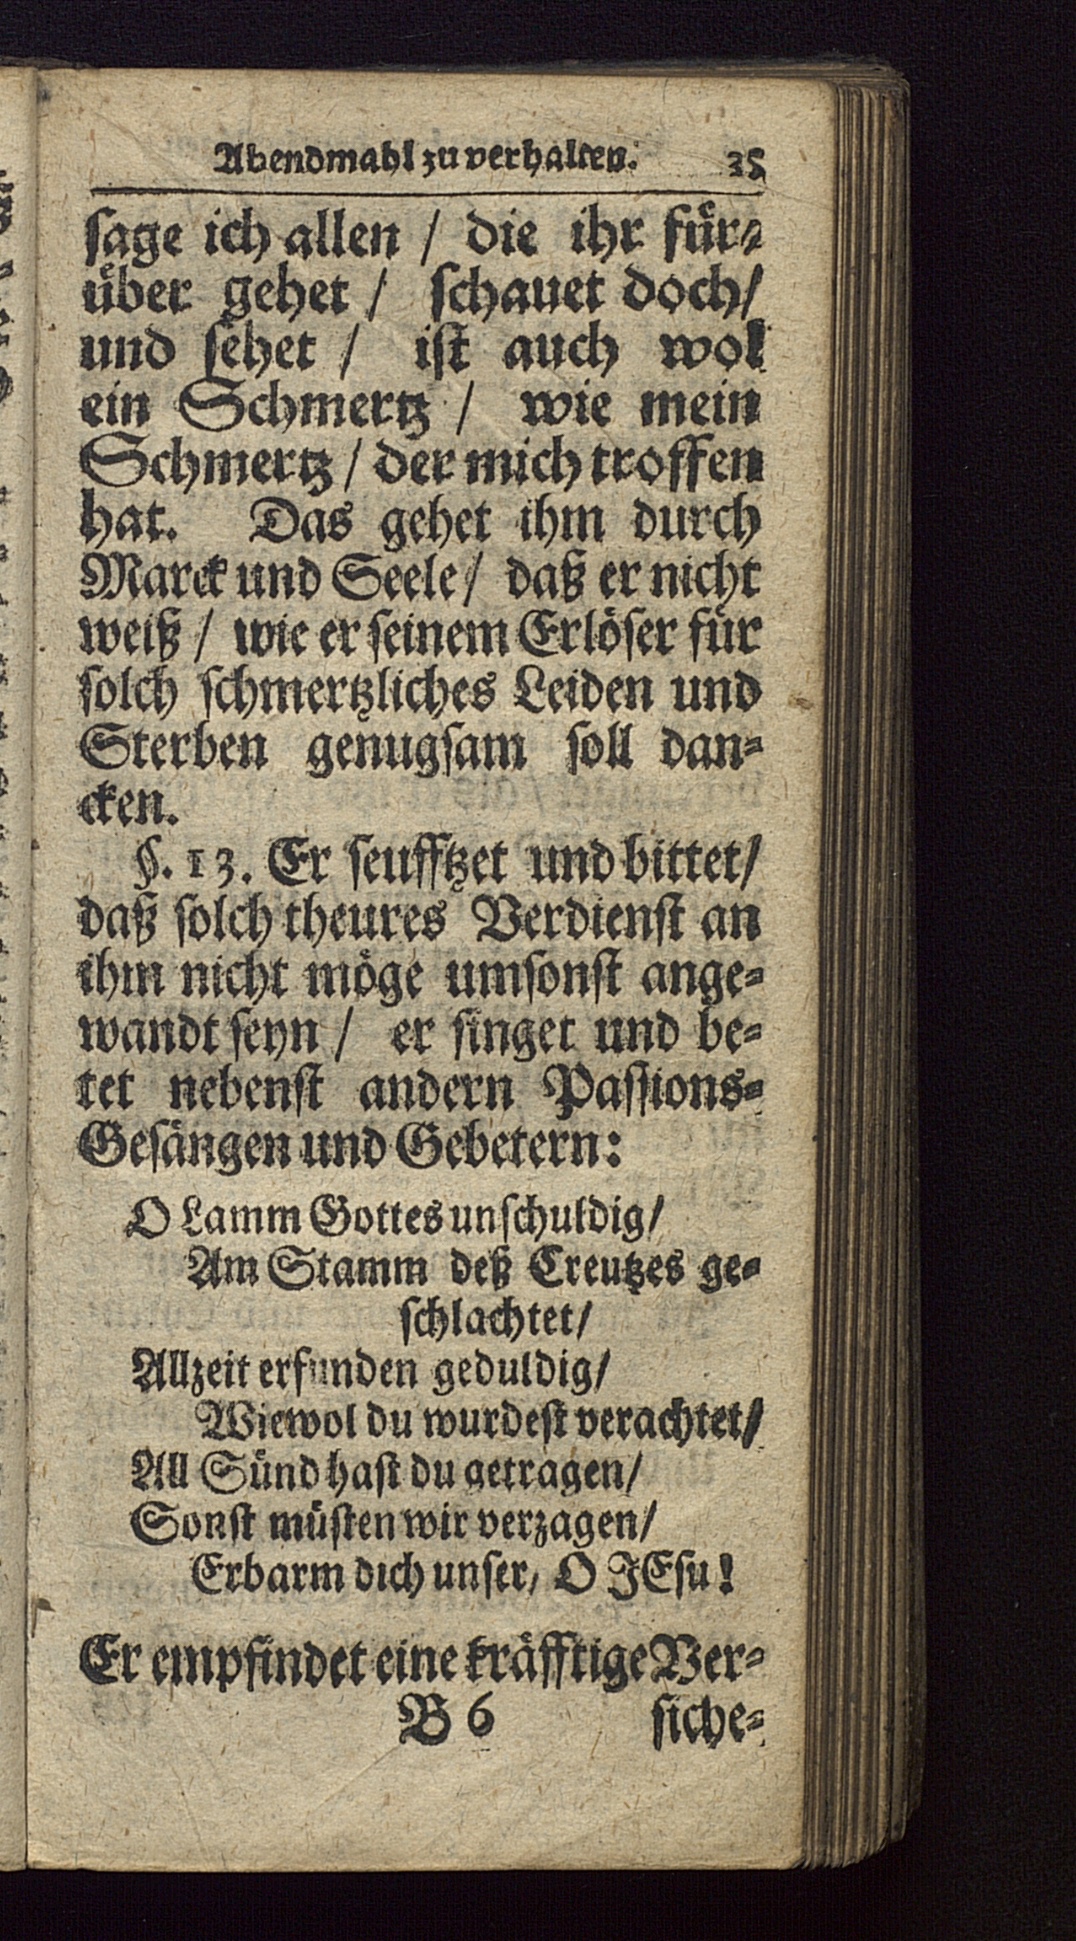 Abendmahl zu verhalten. 35
sage ich allen / die ihr fůr-
ůber gehet / schauet doch/
und sehet / ist auch wol
ein Schmertz / wie mein
Schmertz / der mich troffen
hat. Das gehet ihm durch
Marck und Seele / daß er nicht
weiß / wie er seinem Erlöser fůr
solch schmertzliches Leiden und
Sterben genugsam soll dan-
cken.
§. 13. Er seufftzet und bittet/
daß solch theures Verdienst an
ihm nicht möge umsonst ange-
wandt seyn / er singet und be-
tet nebenst andern Passions-
Gesängen und Gebetern:
O Lamm Gottes unschuldig/
Am Stamm deß Creutzes ge-
schlachtet/
Allzeit erfunden geduldig/
Wiewol du wurdest verachtet/
All Sünd hast du getragen/
Sonst müsten wir verzagen/
Erbarm dich unser, O JEsu!
Er empfindet eine kräfftige Ver-
B 6 siche-